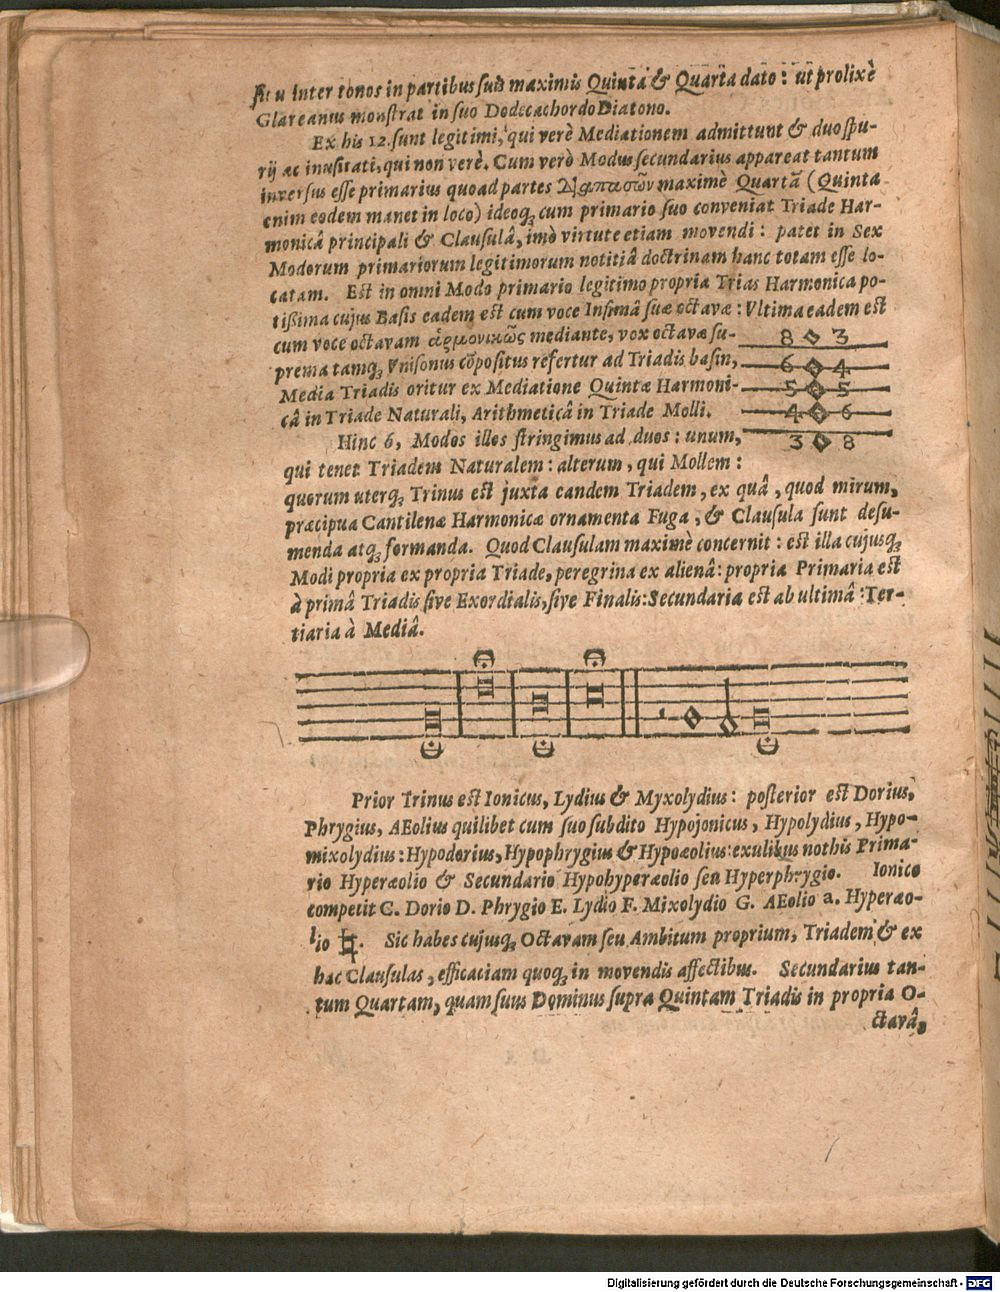 inter tonos in partibus suis maximis Quinta & Quarta dato: ut prolixè
Glareanus monstrat in suo Dodecachordo Diatono.
Ex his 12. sunt legitimi, qui verè Mediationem admittunt & duo spu-
rij ac inusitati, qui non verè. Cum verò Modus secundarius appareat tantum
inversus esse primarius quoad partes Διαπασῶν maximè Quartā (Quinta
enim eodem manet in loco) ideoq; cum primario suo conveniat Triade Har-
monicâ principali & Clausulâ, imò virtute etiam movendi: patet in Sex
Modorum primariorum legitimorum notitiâ doctrinam hanc totam esse lo-
catam. Est in omni Modo primario legitimo propria Trias Harmonica po-
tissima cujus Basis eadem est cum voce Infimâ suæ octavæ: Vltima eadem est
cum voce octavam ἁρμονικῶς mediante, vox octavæ su-
prema tamq; Vnisonus cōpositus refertur ad Triadis basin,
Media Triadis oritur ex Mediatione Quintæ Harmoni-
câ in Triade Naturali, Arithmeticâ in Triade Molli.
8 3
6 4
5 5
4 6
3 8
Hinc 6, Modos illos stringimus ad duos: unum,
qui tenet Triadem Naturalem: alterum, qui Mollem:
quorum uterq; Trinus est juxta eandem Triadem, ex quâ, quod mirum,
præcipua Cantilenæ Harmonicæ ornamenta Fuga, & Clausula sunt desu-
menda atq; formanda. Quod Clausulam maximè concernit: est illa cujusq;
Modi propria ex propria Triade, peregrina ex alienâ: propria Primaria est
à primâ Triadis sive Exordialis, sive Finalis: Secundaria est ab ultimâ: Ter-
tiaria à Mediâ.
Prior Trinus est Ionicus, Lydius & Myxolydius: posterior est Dorius,
Phrygius, AEolius quilibet cum suo subdito Hypojonicus, Hypolydius, Hypo-
mixolydius: Hypodorius, Hypophrygius & Hypoæolius: exulibus nothis Prima-
rio Hyperæolio & Secundario Hypohyperæolio seu Hyperphrygio. Ionico
competit C. Dorio D. Phrygio E. Lydio F. Mixolydio G. AEolio a. Hyperæo-
lio ♮. Sic habes cujusq; Octavam seu Ambitum proprium, Triadem & ex
hac Clausulas, efficaciam quoq; in movendis affectibus. Secundarius tan-
tum Quartam, quam suus Dominus supra Quintam Triadis in propria O-
ctavâ,
Digitalisierung gefördert durch die Deutsche Forschungsgemeinschaft - DFG